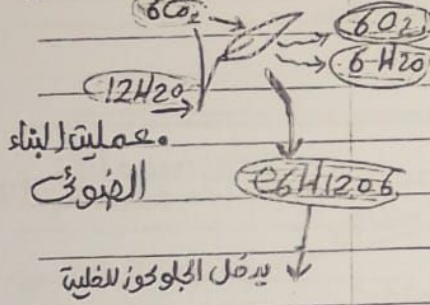 6CO2
6O2
6H2O
12H2O
عملية البناء
الضوئي
C6H12O6
يدخل الجلوكوز للخلية